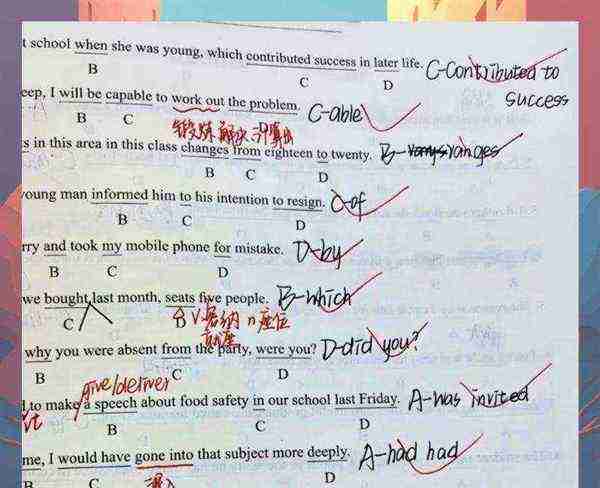 t school when she was young, which contributed success in later life. C-Contributed to
B C D success
eep, I will be capable to work out the problem. C-able
B C
锻炼 解决 计算出
s in this area in this class changes from eighteen to twenty. B- ranges
B C D
young man informed him to his intention to resign. C-of
B C D
rry and took my mobile phone for mistake. D-by
B C D
we bought last month, seats five people. B-which
C B V.容纳 n座位
why you were absent from the party, were you? D-did you?
B C D
give/deliver
l to make a speech about food safety in our school last Friday. A-was invited
B C D
me, I would have gone into that subject more deeply. A-had had
B C D
深入